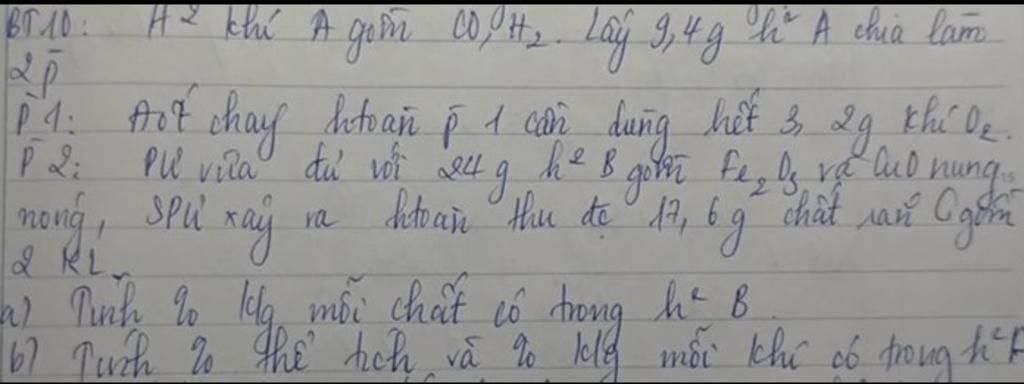 BT10: H² khí A gồm CO, H₂. Lấy 9,4g h² A chia làm
2 p̄
p̄ 1: Đốt cháy htoàn p̄ 1 cần dùng hết 3,2g khí O₂.
p̄ 2: PƯ vừa đủ với 24g h² B gồm Fe₂O₃ và CuO nung
nóng, SPƯ xảy ra htoàn thu đc 17,6g chất rắn C gồm
2 KL.
a) Tính % klg mỗi chất có trong h² B
b) Tính % thể tích và % klg mỗi khí có trong h² A